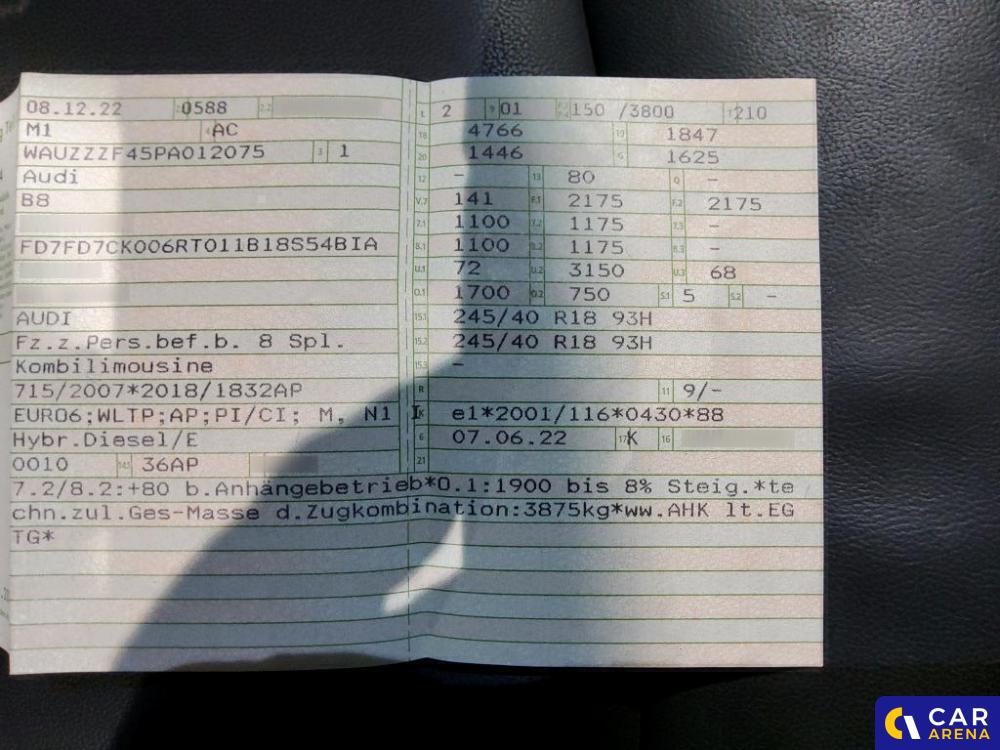 08.12.22 2.1 0588 2.2
M1 4 AC
WAUZZZF45PA012075 3 1
Audi
B8
FD7FD7CK006RT011B18S54BIA
AUDI
Fz.z.Pers.bef.b. 8 Spl.
Kombilimousine
715/2007*2018/1832AP
EURO6;WLTP;AP;PI/CI; M, N1 I
Hybr.Diesel/E
0010 14.1 36AP
L 2 9 01 150 /3800 210
18 4766 19 1847
20 1446 G 1625
12 - 13 80 Q -
V.7 141 F.1 2175 F.2 2175
7.1 1100 7.2 1175 7.3 -
8.1 1100 8.2 1175 8.3 -
U.1 72 U.2 3150 U.3 68
O.1 1700 O.2 750 S.1 5 S.2 -
15.1 245/40 R18 93H
15.2 245/40 R18 93H
15.3 -
R 11 9/-
K e1*2001/116*0430*88
6 07.06.22 17 K 16
21
7.2/8.2:+80 b.Anhängebetrieb*O.1:1900 bis 8% Steig.*te
chn.zul.Ges-Masse d.Zugkombination:3875kg*ww.AHK lt.EG
TG*
CAR
ARENA